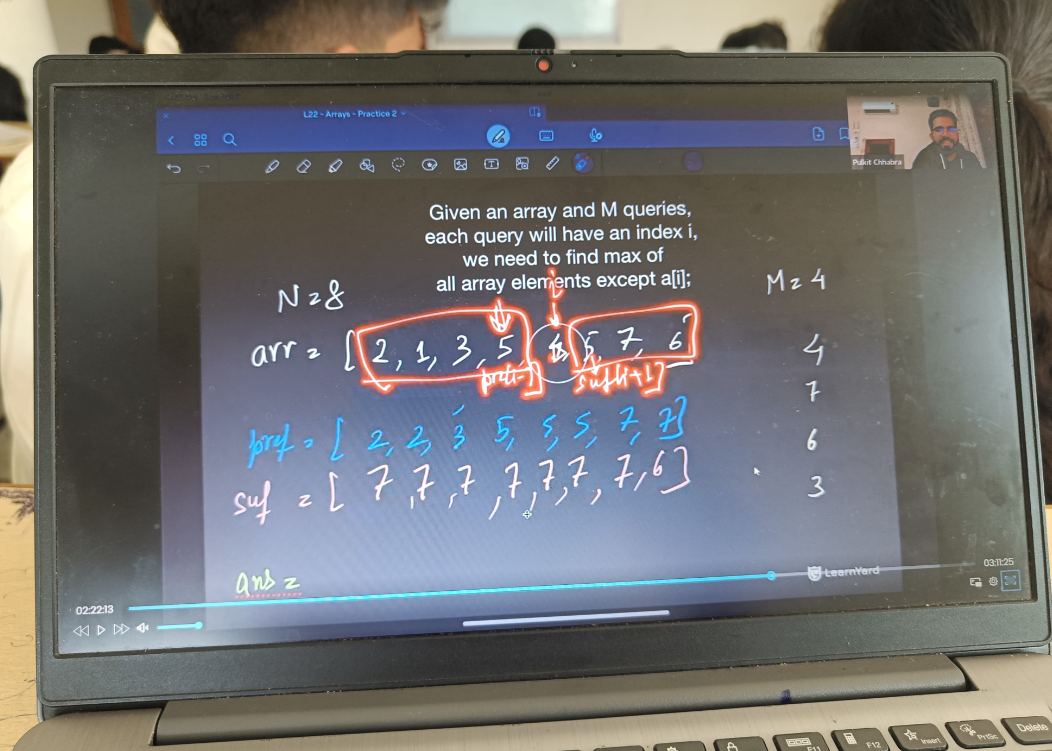 L22 - Arrays - Practice 2
Pulkit Chhabra
Given an array and M queries,
each query will have an index i,
we need to find max of
all array elements except a[i];
N = 8
M = 4
i
arr = [ 2, 1, 3, 5, 5, 7, 6 ]
pref[i-1]
suf[i+1]
4
7
6
3
pref = [ 2, 2, 3, 5, 5, 5, 7, 7 ]
suf = [ 7, 7, 7, 7, 7, 7, 7, 6 ]
ans =
LearnYard
03:11:25
02:22:13
F11
F12
Insert
PrtSc
Delete